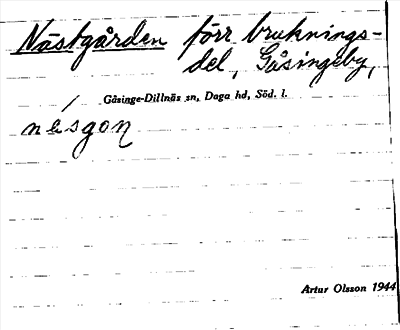 Nästgården förr bruknings-
del, Gåsingeby,
Gåsinge-Dillnäs sn, Daga hd, Söd. l.
nésgon
Artur Olsson 1944